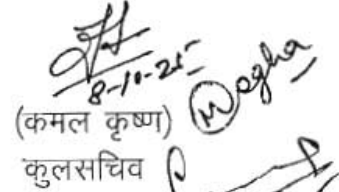 8-10-25
Megha
(कमल कृष्ण)
कुलसचिव